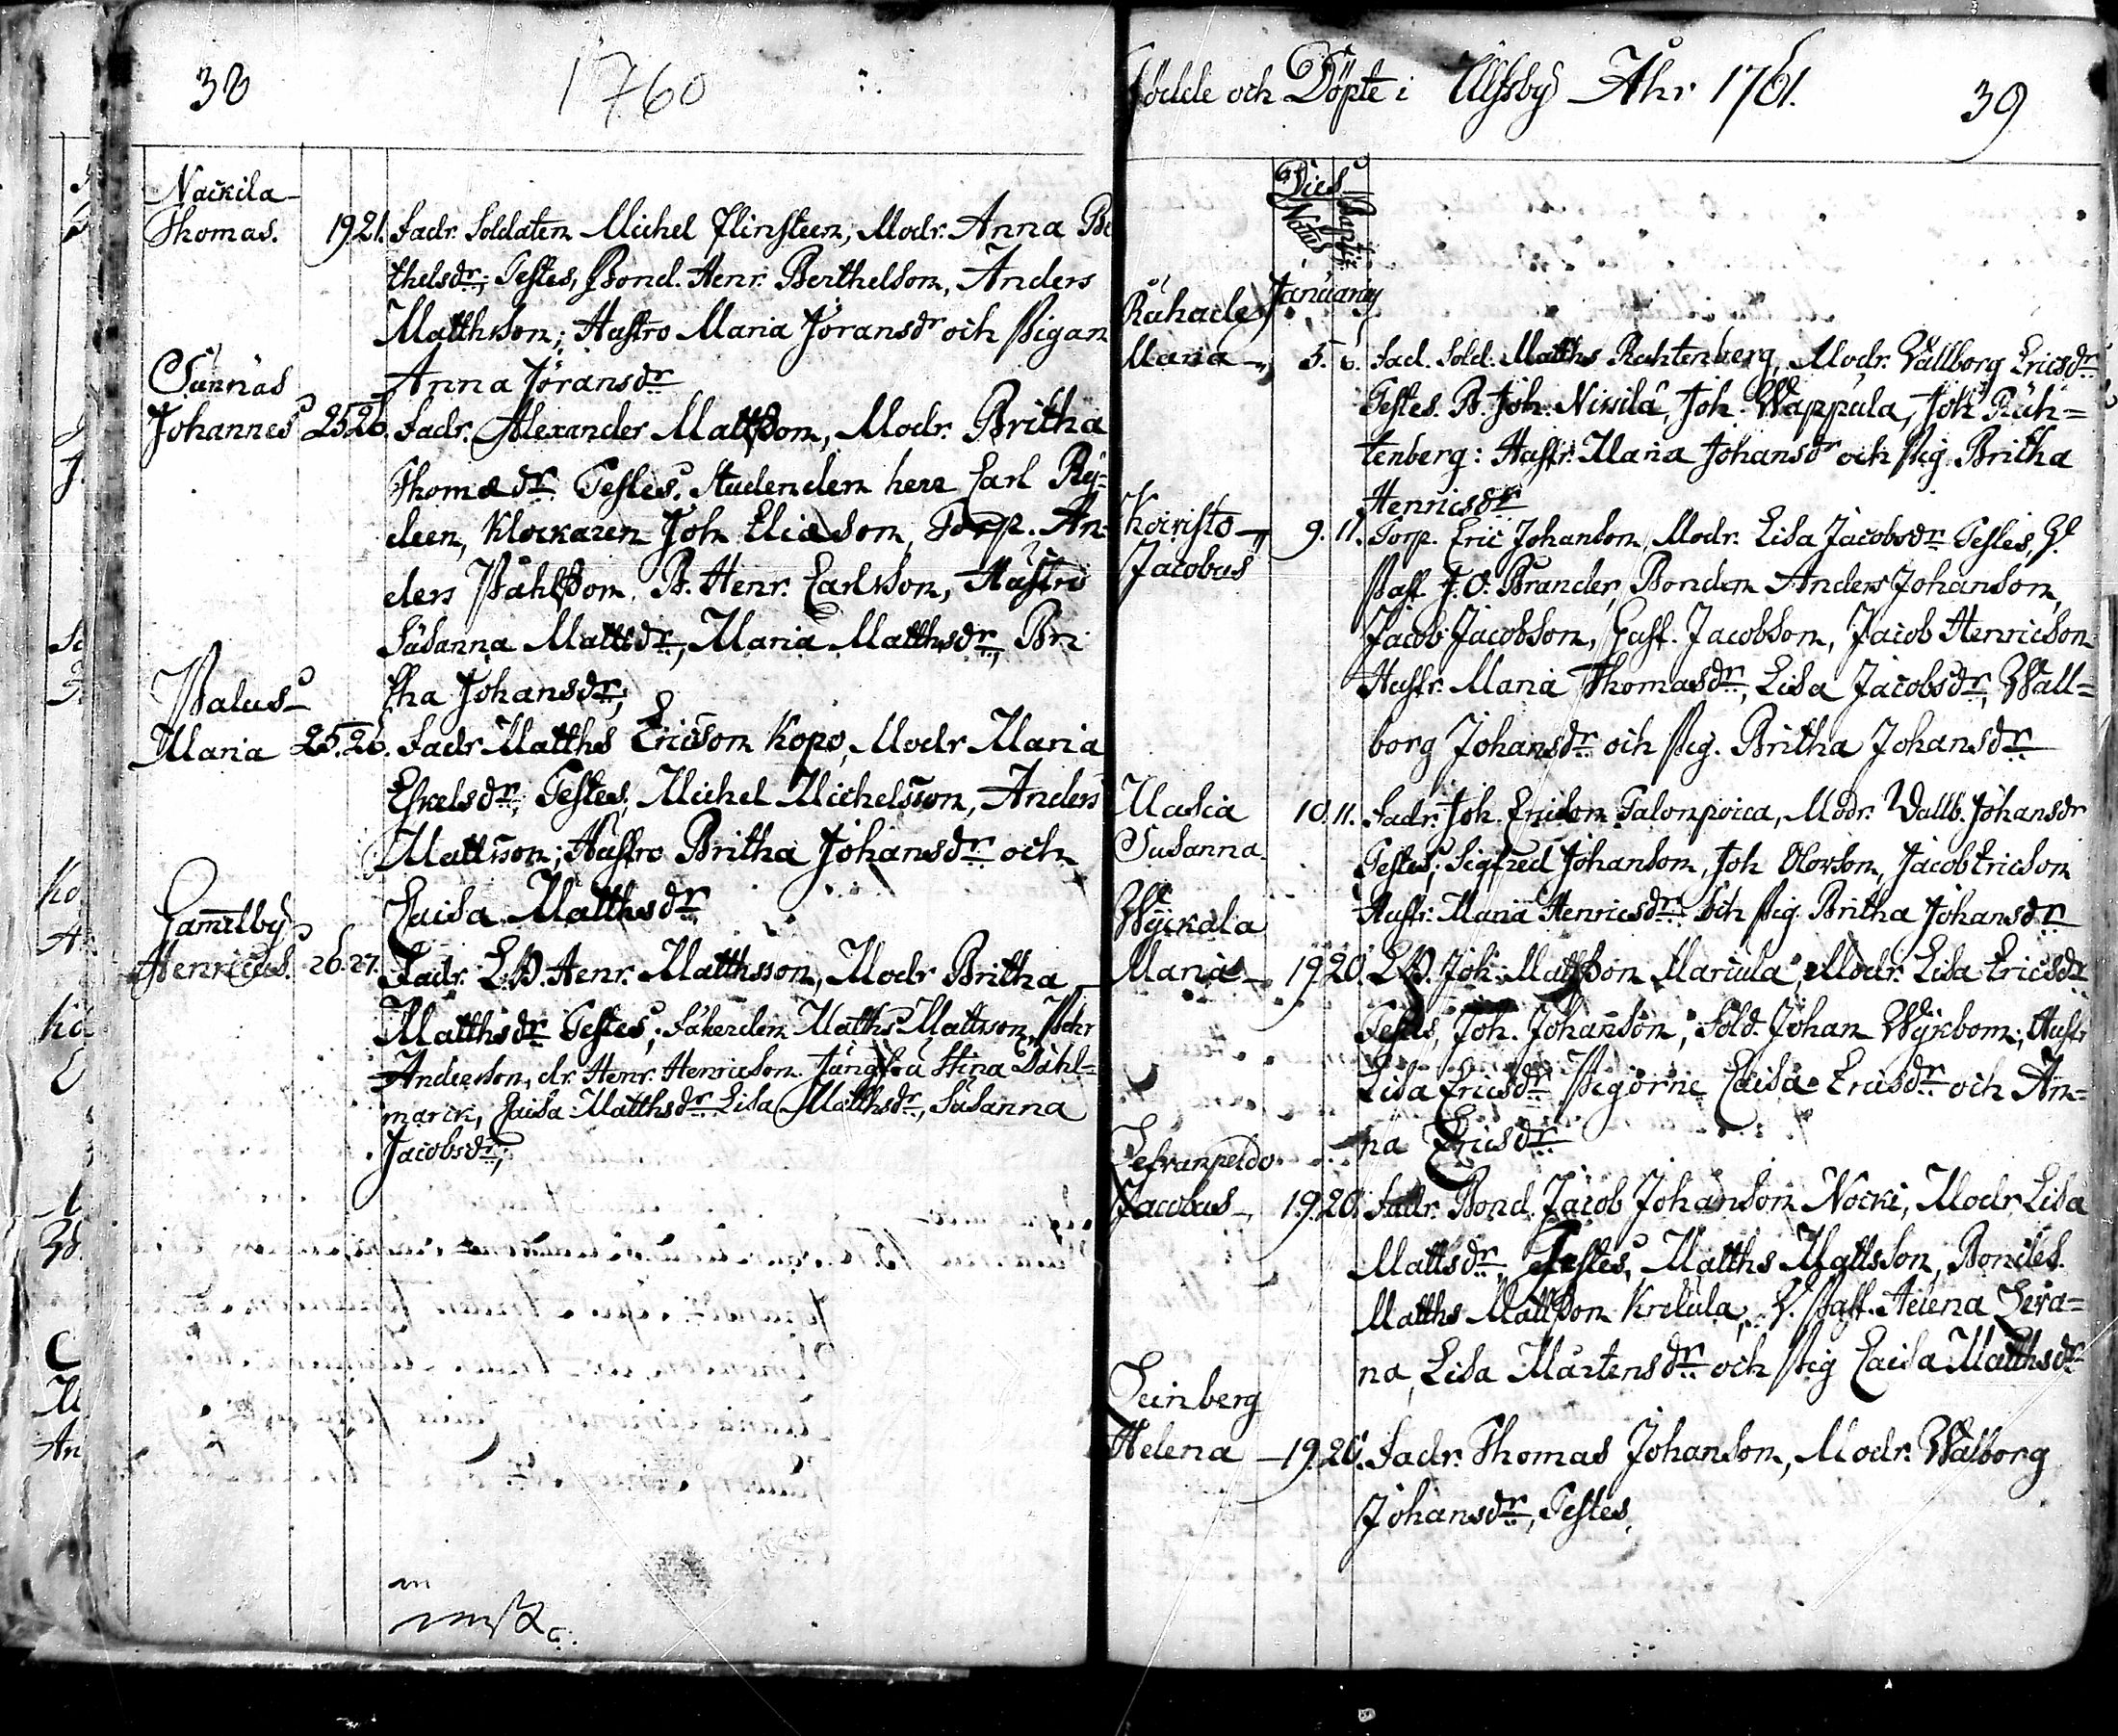 38
1760
Nackila
Thomas. 19 21. Fadr. Soldaten Michel Flinsteen, Modr. Anna Be
thelsdr; Testes, Bond. Henr. Berthelsom, Anders
Matthsson; Hustro Maria Joransdr och Pigan
Sunnas Anna Joransdr
Johannes 25 26. Fadr. Alexander Mattsson, Modr. Britha
Thomædr. Testes. Studenden herr Carl Ry=
deen, Klockaren Joh Eliæsom, Torp. An-
ders Påhlsson, B. Henr. Carlsson, Hustro
Susanna Mattsdr, Maria Matthsdr, Bri
tha Johansdr;
Palus
Maria 25. 26. Fadr Matths Ericsson Kopo, Modr Maria
Eskelsdr, Testes, Michel Michelsson, Anders
Mattsson; Hustro Britha Johansdr och
Caisa Matthsdr
Gamelby
Henricus. 26. 27. Fadr. L.B. Henr. Matthsson, Modr Britha
Matthsdr Testes; Matths Mattsson,
Andersson, dr. Henr. Henricsom. Jungfru Stina Dahl=
marck, Caisa Matthsdr Lisa Matthsdr, Susanna
Jacobsdr;
Födde och Döpte i Ulfsby Åhr 1761. 39
Dies
Natus Bapti:
Januarij
Maria 5. 6. Fad. Sold. Matths Ruhtenberg, Modr. Wallborg Ericsdr
Testes. B. Joh. Nissilä, Joh. Wappula, Joh Ruh=
tenberg: Hustr. Maria Johansdr och Pig. Britha
Henricsdr
Koivisto 9. 11. Torp. Eric Johansom, Modr. Lisa Jacobsdr Testes,
Jacobus Past. J. O. Brander, Bonden Anders Johansom,
Jacob Jacobsom, Gust. Jacobsom, Jacob Henricsom
Hustr. Maria Thomasdr, Lisa Jacobsdr, Wall=
borg Johansdr och Pig. Britha Johansdr
Masia 10. 11. Fadr. Joh. Ericsom Talonpoica, Modr. Wallb. Johansdr
Susanna. Testes; Sigfred Johansom, Joh Olovsom, Jacob Ericsom
Hustr. Maria Henricsdr och Pig. Britha Johansdr
Wyckala
Maria 19. 20. L.B. Joh. Mattsson Marcula, Modr. Lisa Ericsdr
Testes, Joh. Johansom, Sold. Johan Wykbom; Hustr
Lisa Ericsdr Pigorne Caisa Ericsdr och An=
na Ericsdr
Jacobus 19. 20. Fadr. Bond. Jacob Johansom Nocki, Modr Lisa
Mattsdr, Testes, Matths Mattsson, Bondes.
Matths Mattsson Krekula, Helena Sera=
na, Lisa Mårtensdr och Pig Caisa Matthsdr
Seinberg
Helena 19. 20. Fadr. Thomas Johansom, Modr. Walborg
Johansdr, Testes,